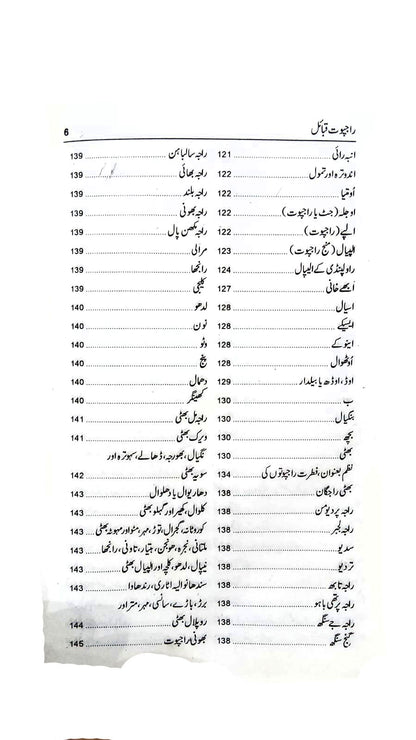 راجپوت قبائل 6
انبہ رائی 121
اندوترہ اور تمول 122
اوتیا 122
اوجلہ (جٹ یا راجپوت) 122
الپے (راجپوت) 122
الپیال (منج راجپوت) 123
راولپنڈی کے الپیال 124
ابھے خانی 127
اسیال 128
128
اینوکے 128
اُٹھوال 128
اوڈ، اوڈھ یا بیلدار 129
ب 130
بنگیال 130
بچے 130
بھٹی 130
نظم بعنوان، فطرت راجپوتوں کی 134
بھٹی راجگان 138
راجہ پردیومن 138
راجہ گجر 138
سدیو 138
تردیو 138
راجہ تابھ 138
راجہ پرتھی باہو 138
راجہ جے سنگھ 138
گنج سنگھ 138
راجہ سالباہن 139
راجہ بھائی 139
راجہ بلند 139
راجہ بھونی 139
راجہ مکھن پال 139
مرالی 139
رانجھا 139
کلیجی 139
لدھو 140
نون 140
وٹو 140
پنج 140
دھمال 140
کھچگر 140
راجہ مل بھٹی 141
ویرک بھٹی 141
نگیال، بھورجہ، ڈھالے، سہوترہ اور
سوہیہ بھٹی 142
دھاریوال یا دھلوال 143
کلوال، کھیرا اور گہلو بھٹی 143
کوروٹانہ، گجرال، توڑ، مہر، مٹو اور مہوٹہ بھٹی 143
ملتانی، نجرہ، ہونجن، ہتیار، تاونی، رانجھا 143
نیپال، لدھو، کلچی اور الپیال بھٹی 143
سندھانوالیہ اٹاری، رندھاوا 143
برڑ، باڑے، سانسی، مہر، متر اور
روپلال بھٹی 144
بھونی راجپوت 145